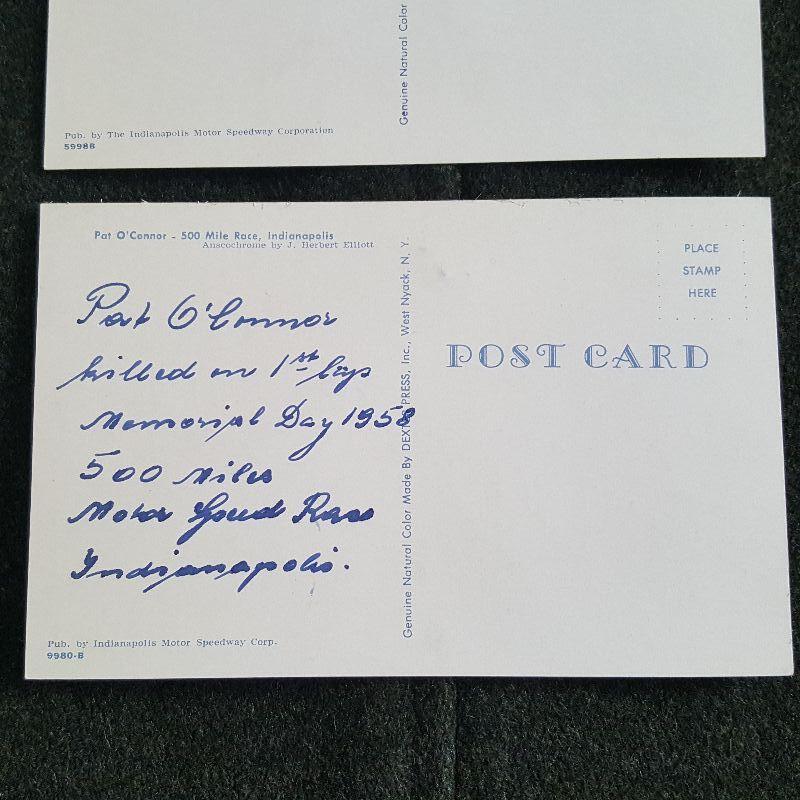 Genuine Natural Color
Pub. by The Indianapolis Motor Speedway Corporation
5998B
Pat O'Connor - 500 Mile Race, Indianapolis
Anscochrome by J. Herbert Elliott
Pat O'Connor
killed on 1st lap
Memorial Day 1958
500 Miles
Motor Speed Race
Indianapolis.
Pub. by Indianapolis Motor Speedway Corp.
9980-B
Genuine Natural Color Made By DEXTER PRESS, Inc., West Nyack, N. Y.
PLACE
STAMP
HERE
POST CARD